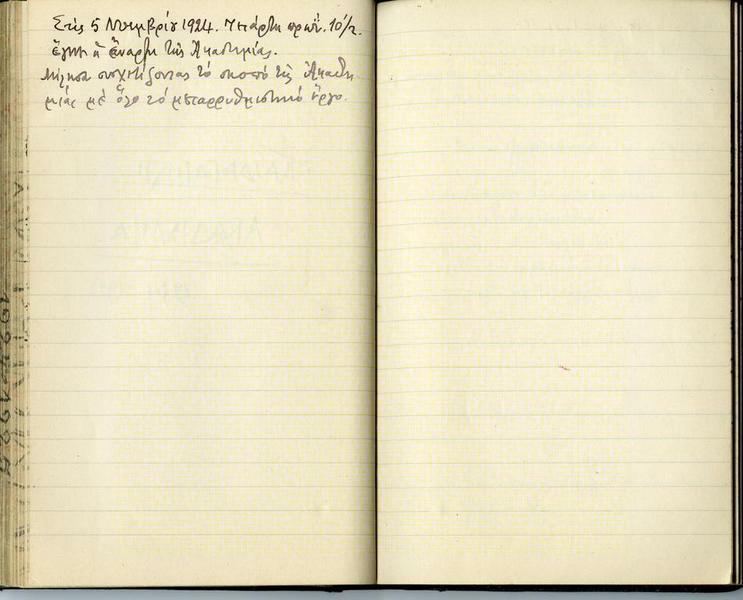 Στις 5 Νοεμβρίου 1924. Τετάρτη πρωΐ. 10 1/2.
ἔγινε ἡ ἔναρξη τῆς Ἀκαδημίας.
Μίλησα συσχετίζοντας τὸ σκοπὸ τῆς Ἀκαδη
μίας μὲ ὅλο τὸ μεταρρυθμιστικὸ ἔργο.